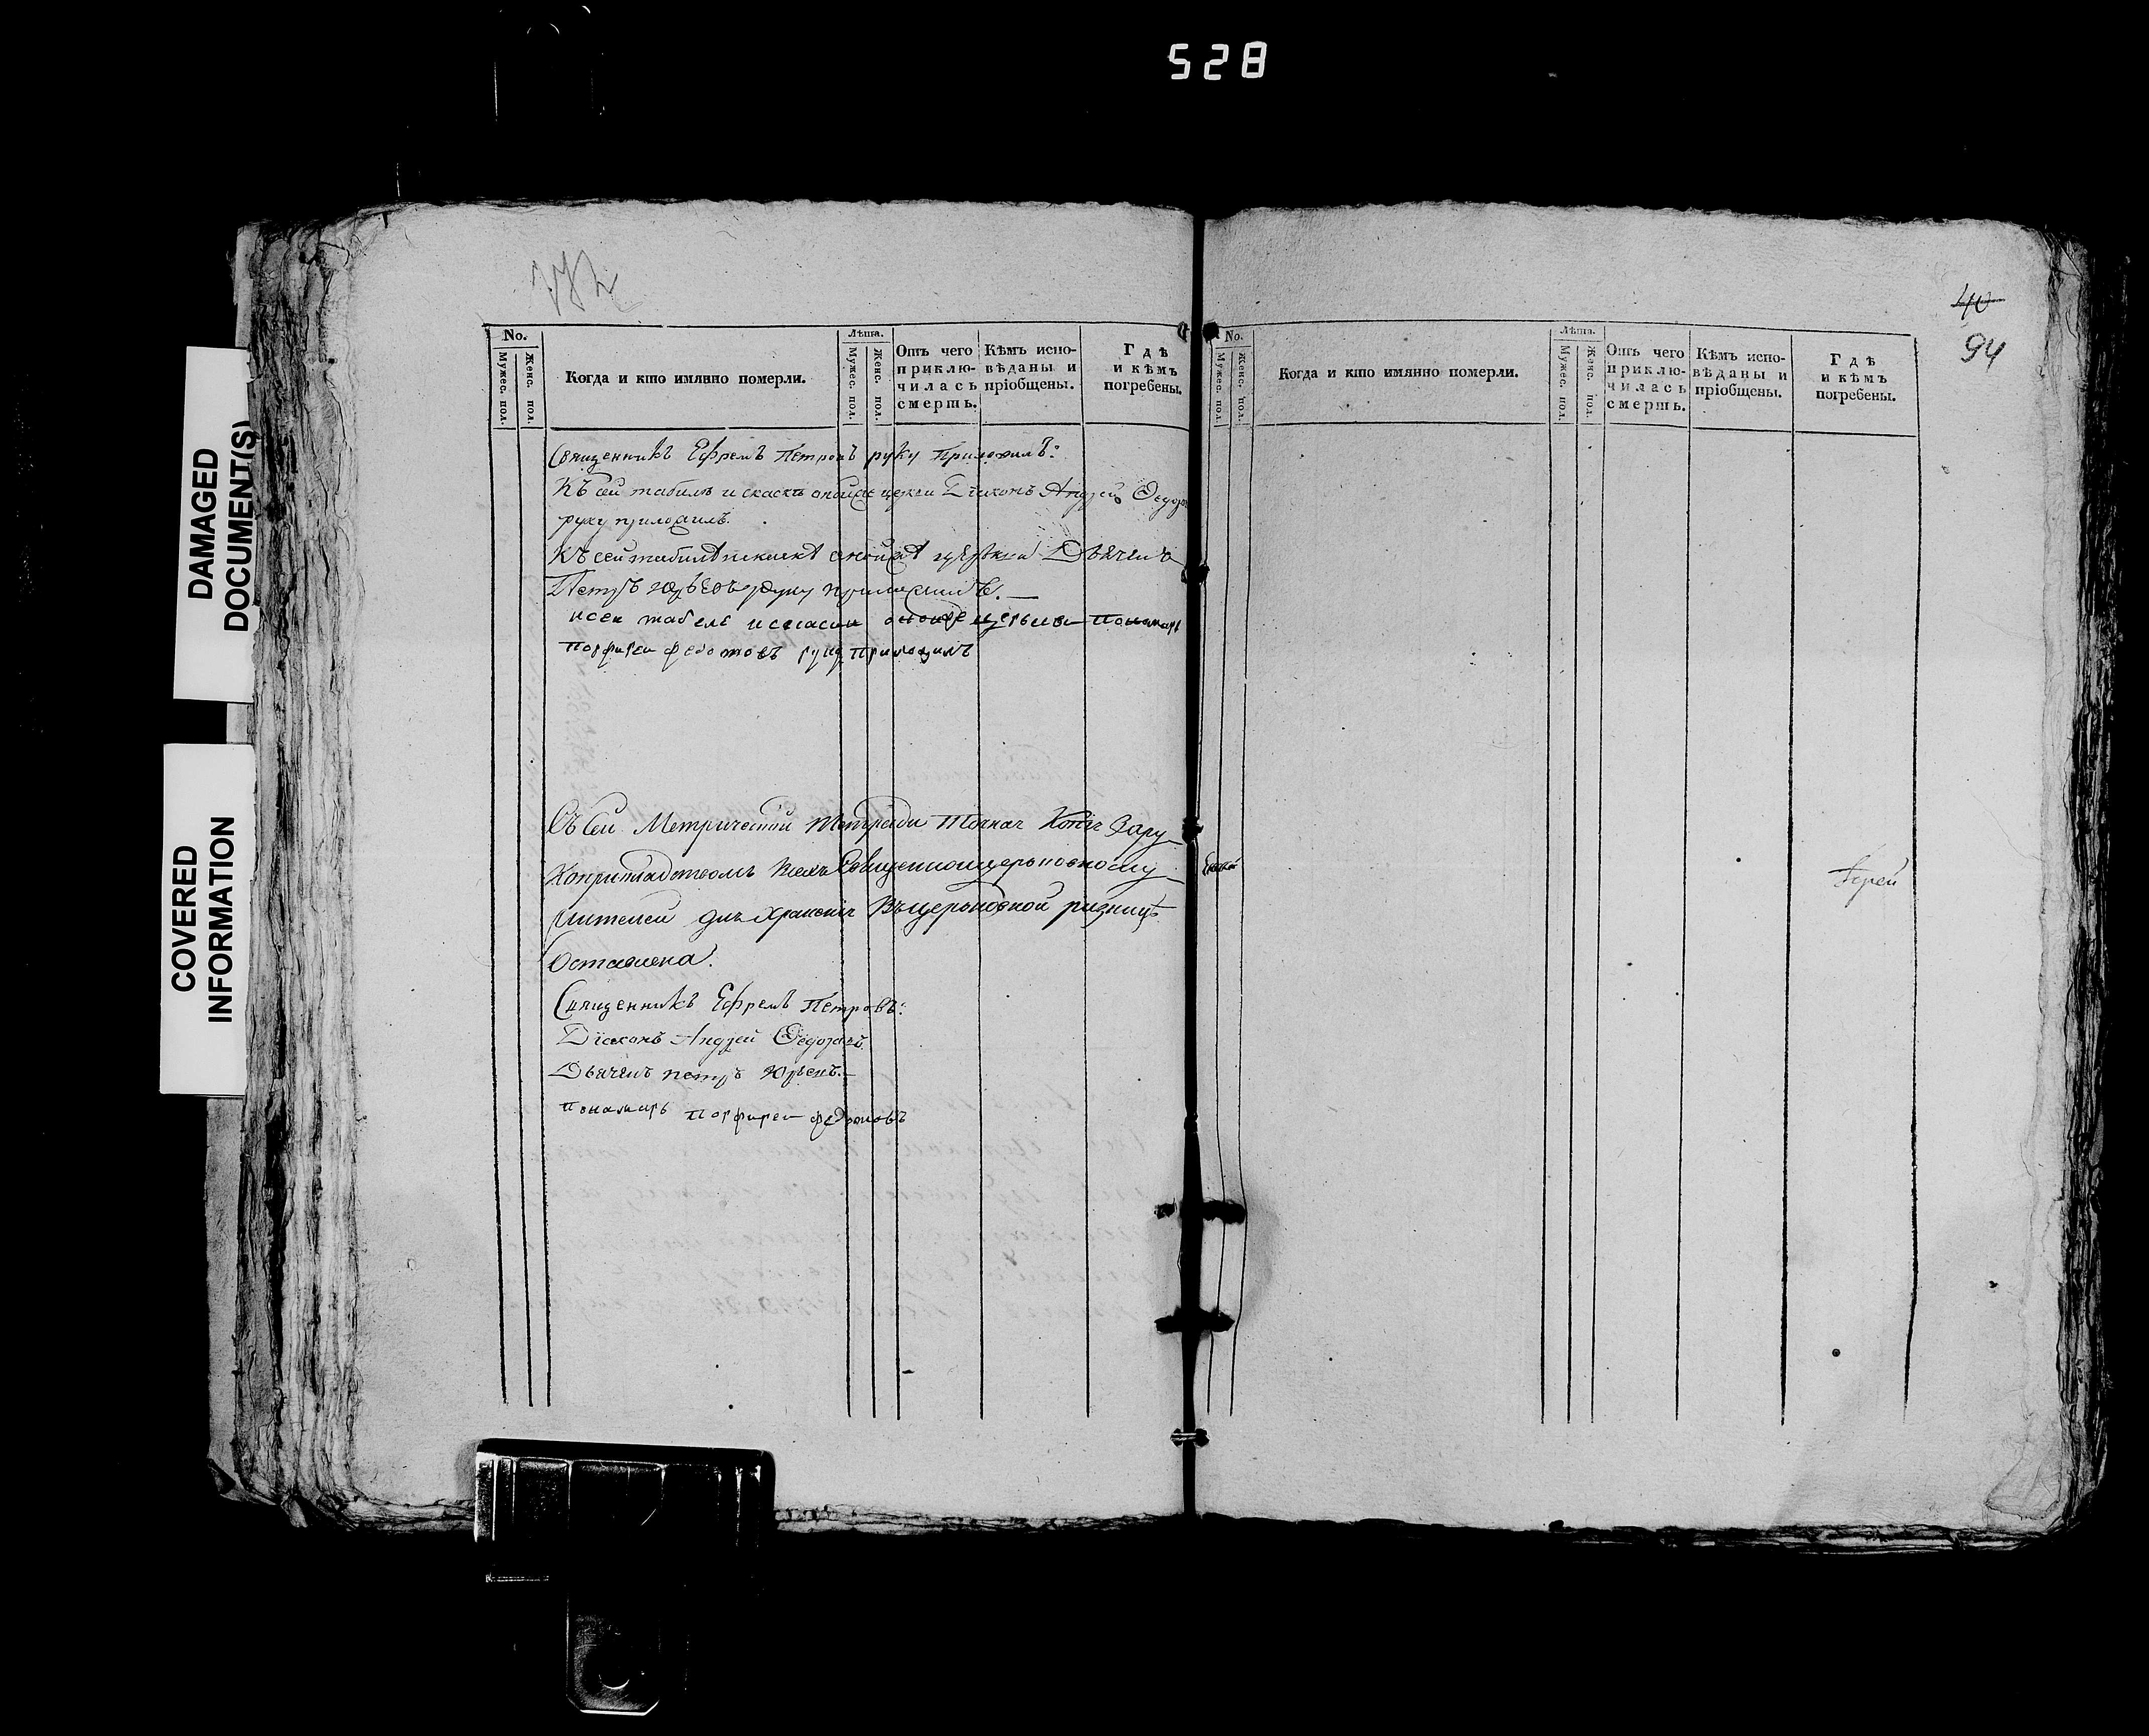 528
DAMAGED
DOCUMENT(S)
COVERED
INFORMATION
No.
Мужес. пол.
Женс. пол.
Когда и кто имянно померли.
Лѣта.
Мужес. пол.
Женс. пол.
Отъ чего
приклю-
чилась
смерть.
Кѣмъ испо-
вѣданы и
пріобщены.
Гдѣ
и кѣмъ
погребены.
Священникъ Ефремъ Петровъ руку приложилъ:
Къ сей табели и сказкѣ оной же церкви Діаконъ Андрей Ѳедор
руку приложилъ.
Къ сей табели оной же церкви Дьячекъ
Петръ Юрьевъ руку приложилъ.
исей табеле оной же церкви Пономарь
Порфирей федотовъ руку Приложилъ
Съ Сей Метрической Тетради Точная Копія Зару
Коприкладствомъ Всехъ Священноцерьковнослу
жителей для храненія Въ церьковной ризницѣ
Оставлена.
Священникъ Ефремъ Петровъ:
Діаконъ Андрей Ѳедоровъ
Дьячекъ петръ Юрьевъ.
Пономарь Порфирей федотовъ
40
94
No.
Мужес. пол.
Женс. пол.
Когда и кто имянно померли.
Лѣта.
Мужес. пол.
Женс. пол.
Отъ чего
приклю-
чилась
смерть.
Кѣмъ испо-
вѣданы и
пріобщены.
Гдѣ
и кѣмъ
погребены.
Іерей